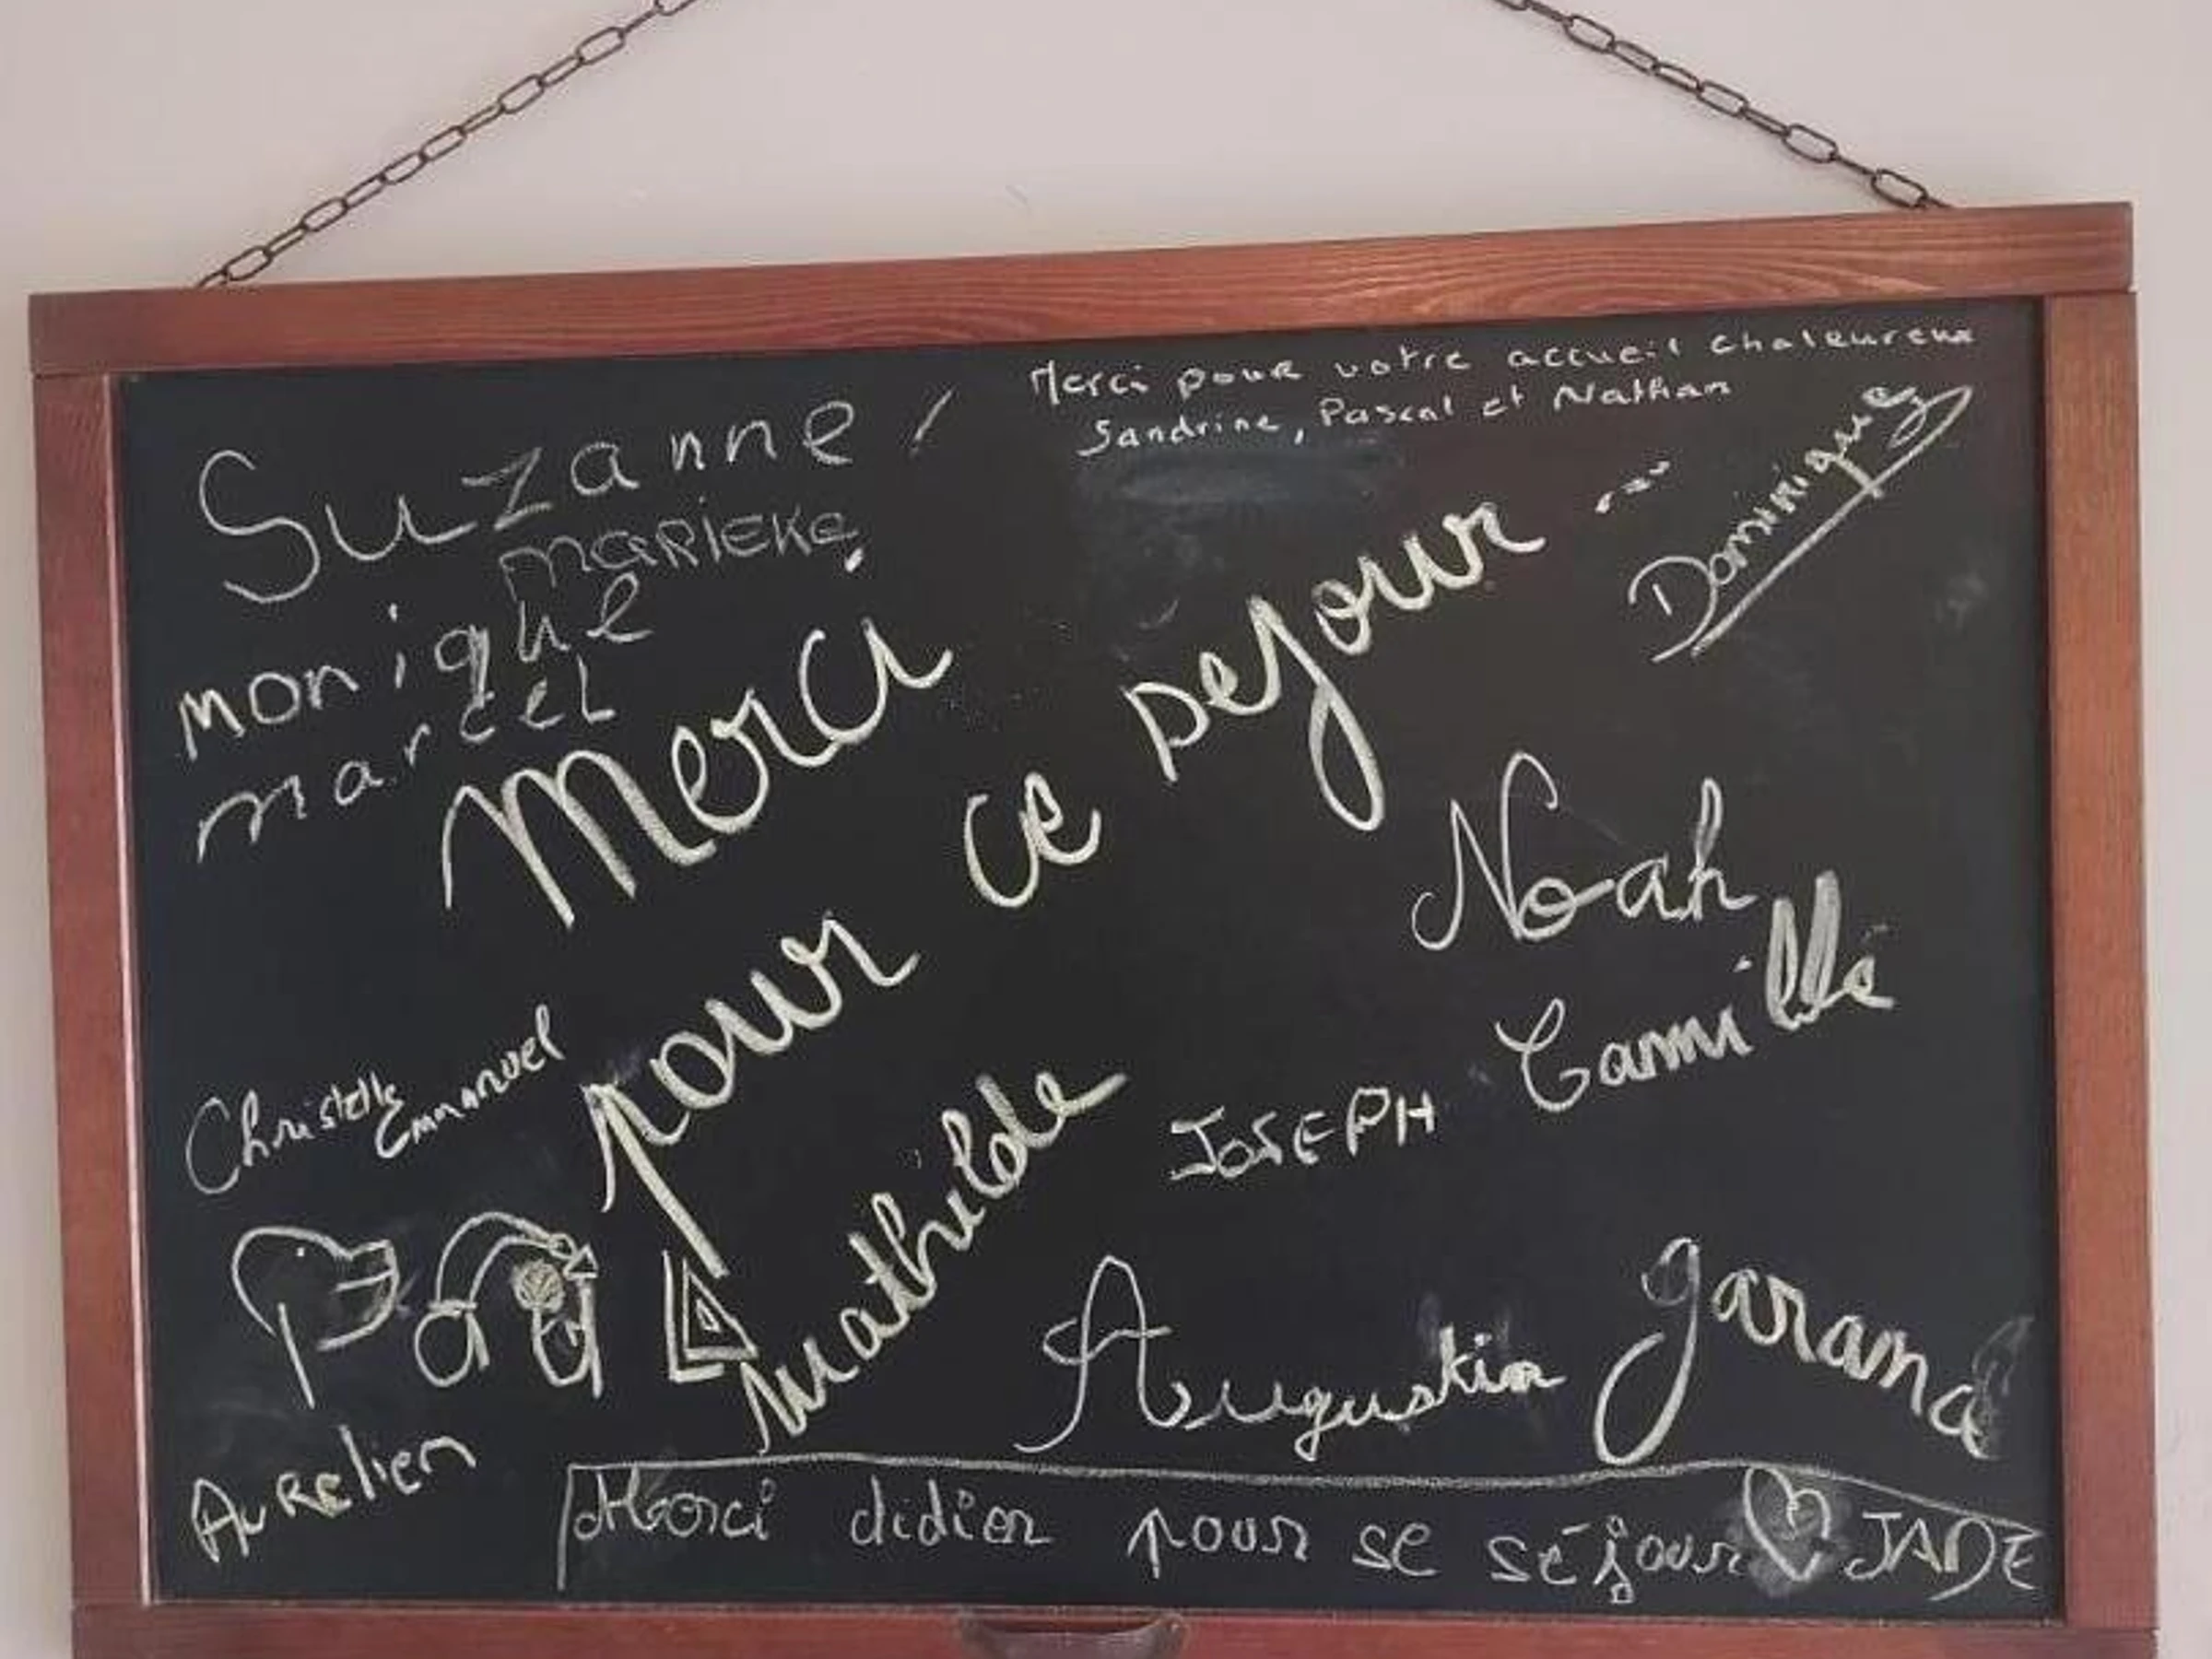 Merci pour votre accueil chaleureux
Sandrine, Pascal et Nathan
Suzanne
MARIEKE
monique
marcel
Dominique
Merci
pour ce sejour ---
Noah
Camille
Christelle
Emmanuel
Mathilde
JOSEPH
Augustin
Aurelien
Merci didier pour se séjour JADE